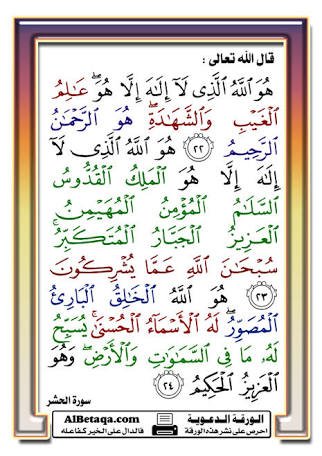 قال الله تعالى :
هُوَ ٱللَّهُ ٱلَّذِى لَآ إِلَـٰهَ إِلَّا هُوَ ۖ عَـٰلِمُ
ٱلْغَيْبِ وَٱلشَّهَـٰدَةِ ۖ هُوَ ٱلرَّحْمَـٰنُ
ٱلرَّحِيمُ ﴿٢٢﴾ هُوَ ٱللَّهُ ٱلَّذِى لَآ
إِلَـٰهَ إِلَّا هُوَ ٱلْمَلِكُ ٱلْقُدُّوسُ
ٱلسَّلَـٰمُ ٱلْمُؤْمِنُ ٱلْمُهَيْمِنُ
ٱلْعَزِيزُ ٱلْجَبَّارُ ٱلْمُتَكَبِّرُ ۚ
سُبْحَـٰنَ ٱللَّهِ عَمَّا يُشْرِكُونَ
﴿٢٣﴾ هُوَ ٱللَّهُ ٱلْخَـٰلِقُ ٱلْبَارِئُ
ٱلْمُصَوِّرُ ۖ لَهُ ٱلْأَسْمَآءُ ٱلْحُسْنَىٰ ۚ يُسَبِّحُ
لَهُۥ مَا فِى ٱلسَّمَـٰوَٰتِ وَٱلْأَرْضِ ۖ وَهُوَ
ٱلْعَزِيزُ ٱلْحَكِيمُ ﴿٢٤﴾
سورة الحشر
الورقة الدعوية AlBetaqa.com
احرص على نشر هذه الورقة فالدال على الخير كفاعله